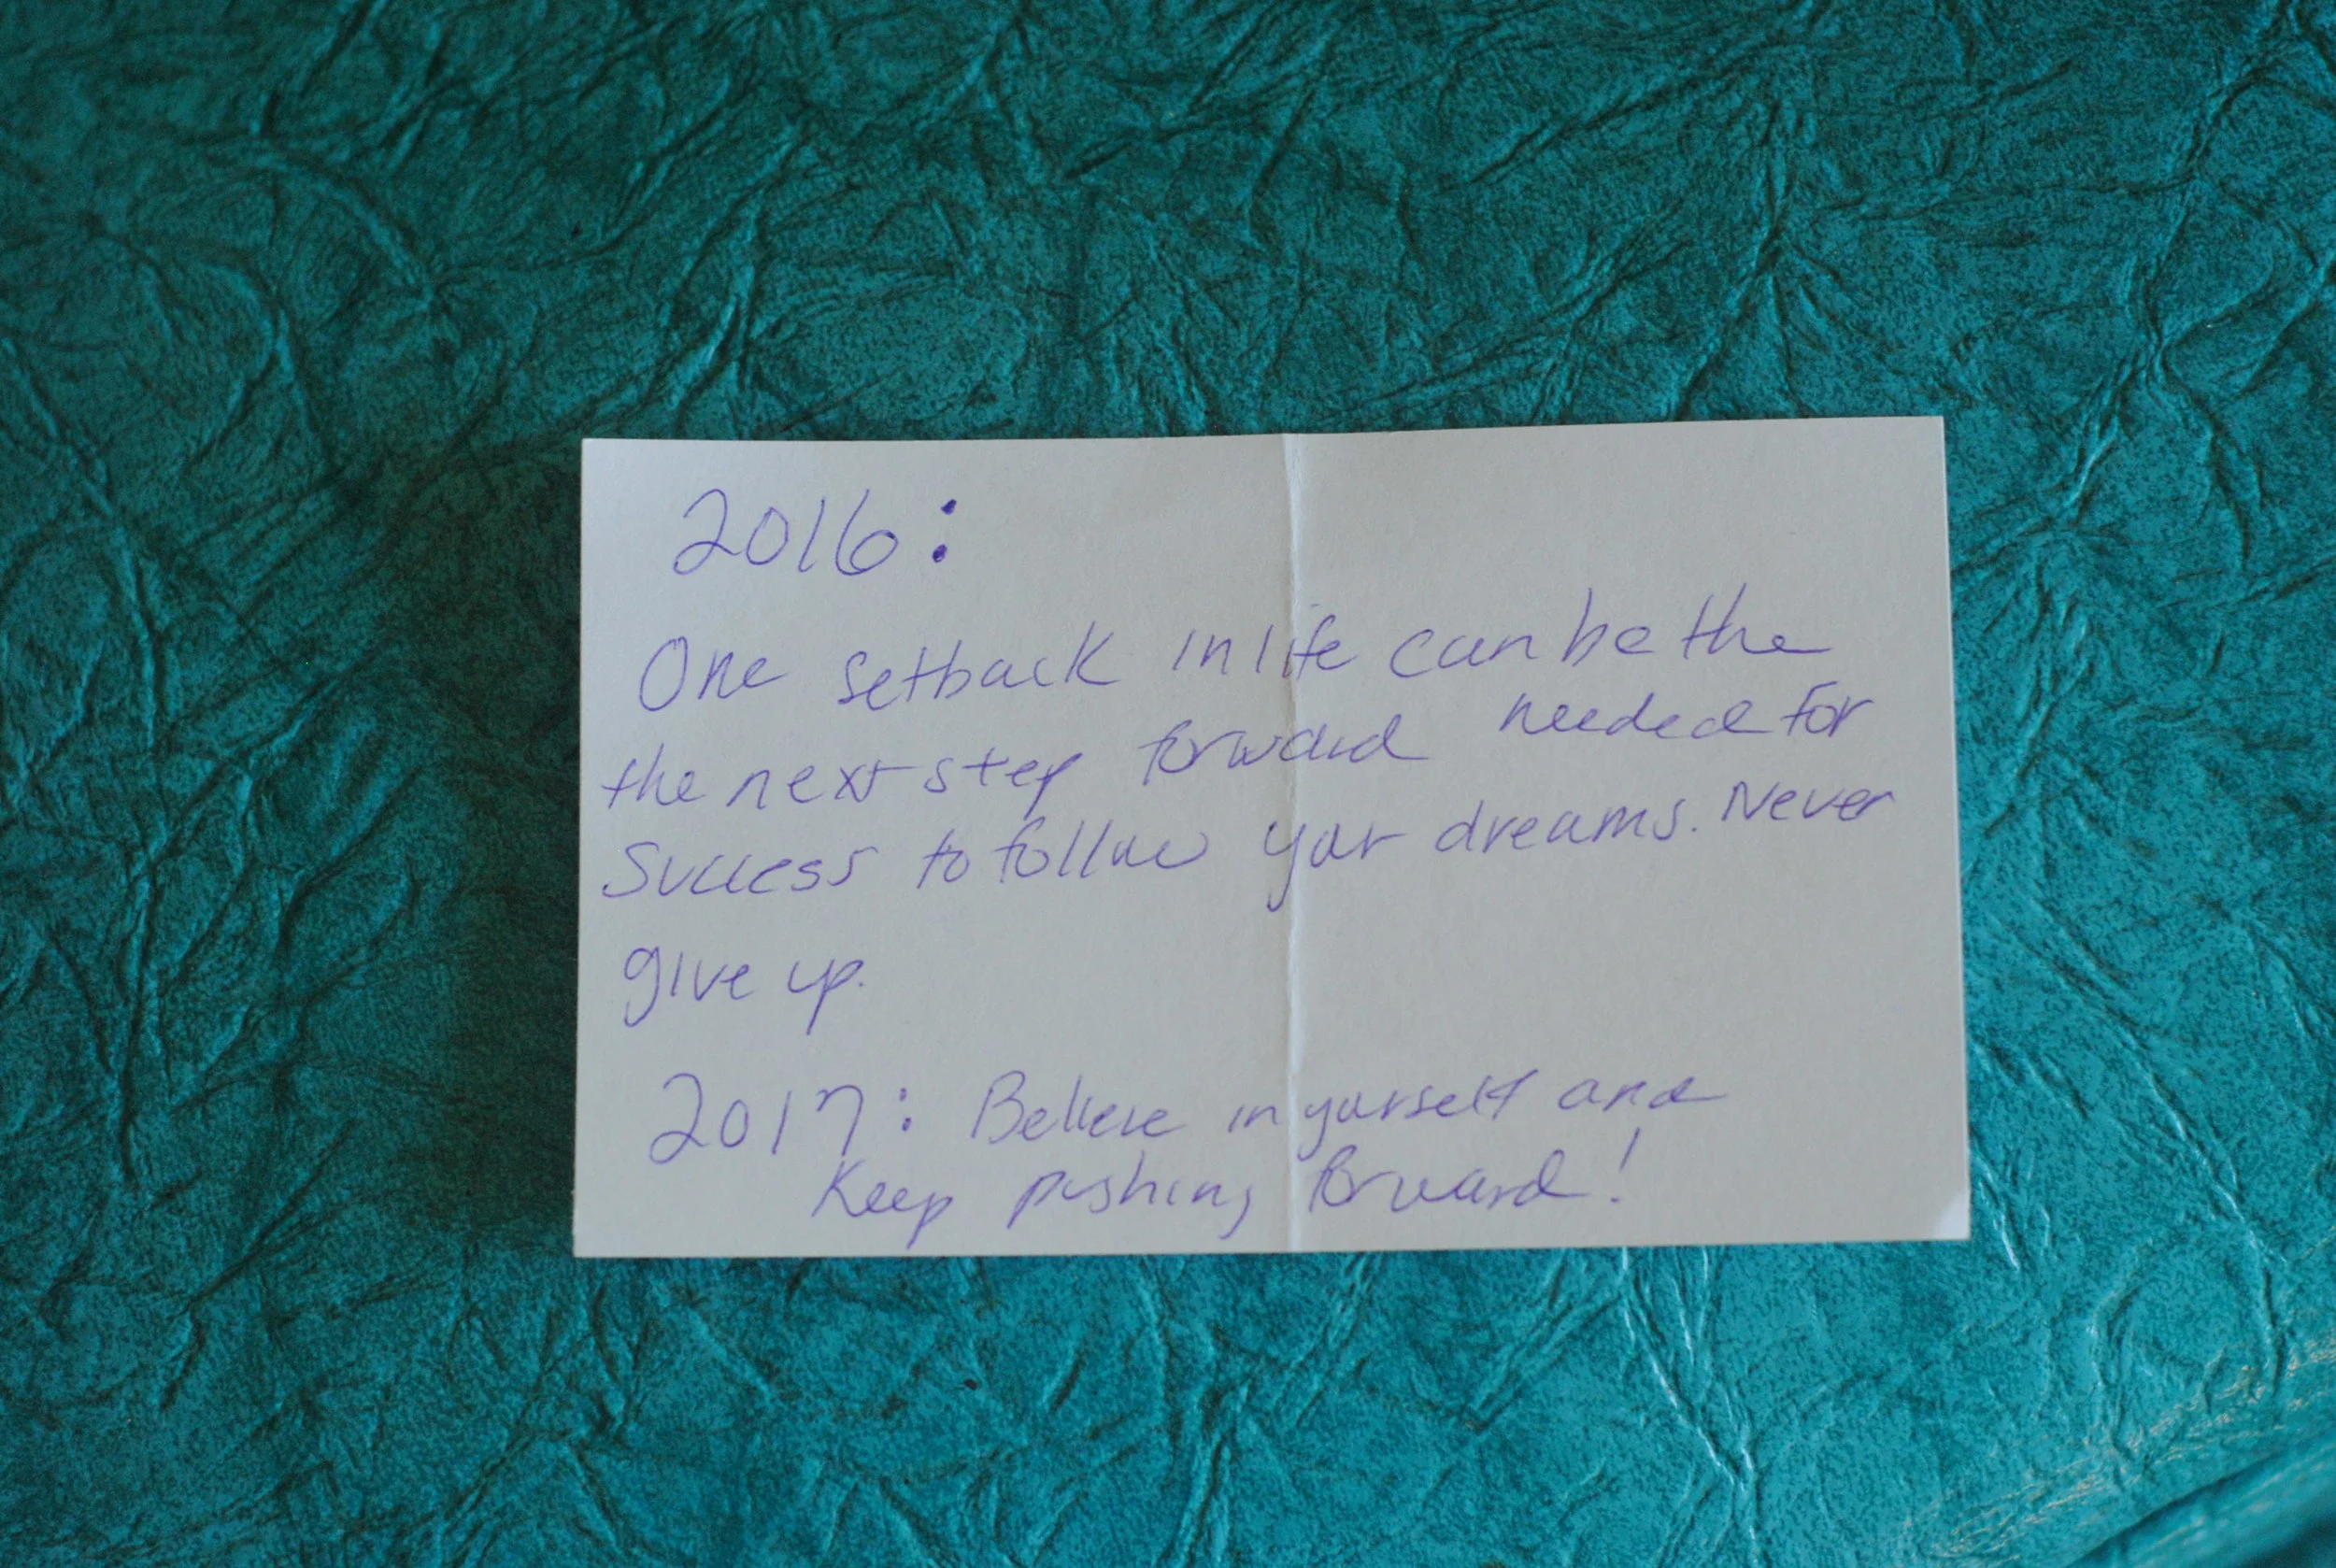 2016:
One setback in life can be the
the next step forward needed for
Success to follow your dreams. Never
give up.
2017: Believe in yourself and
Keep pushing forward!